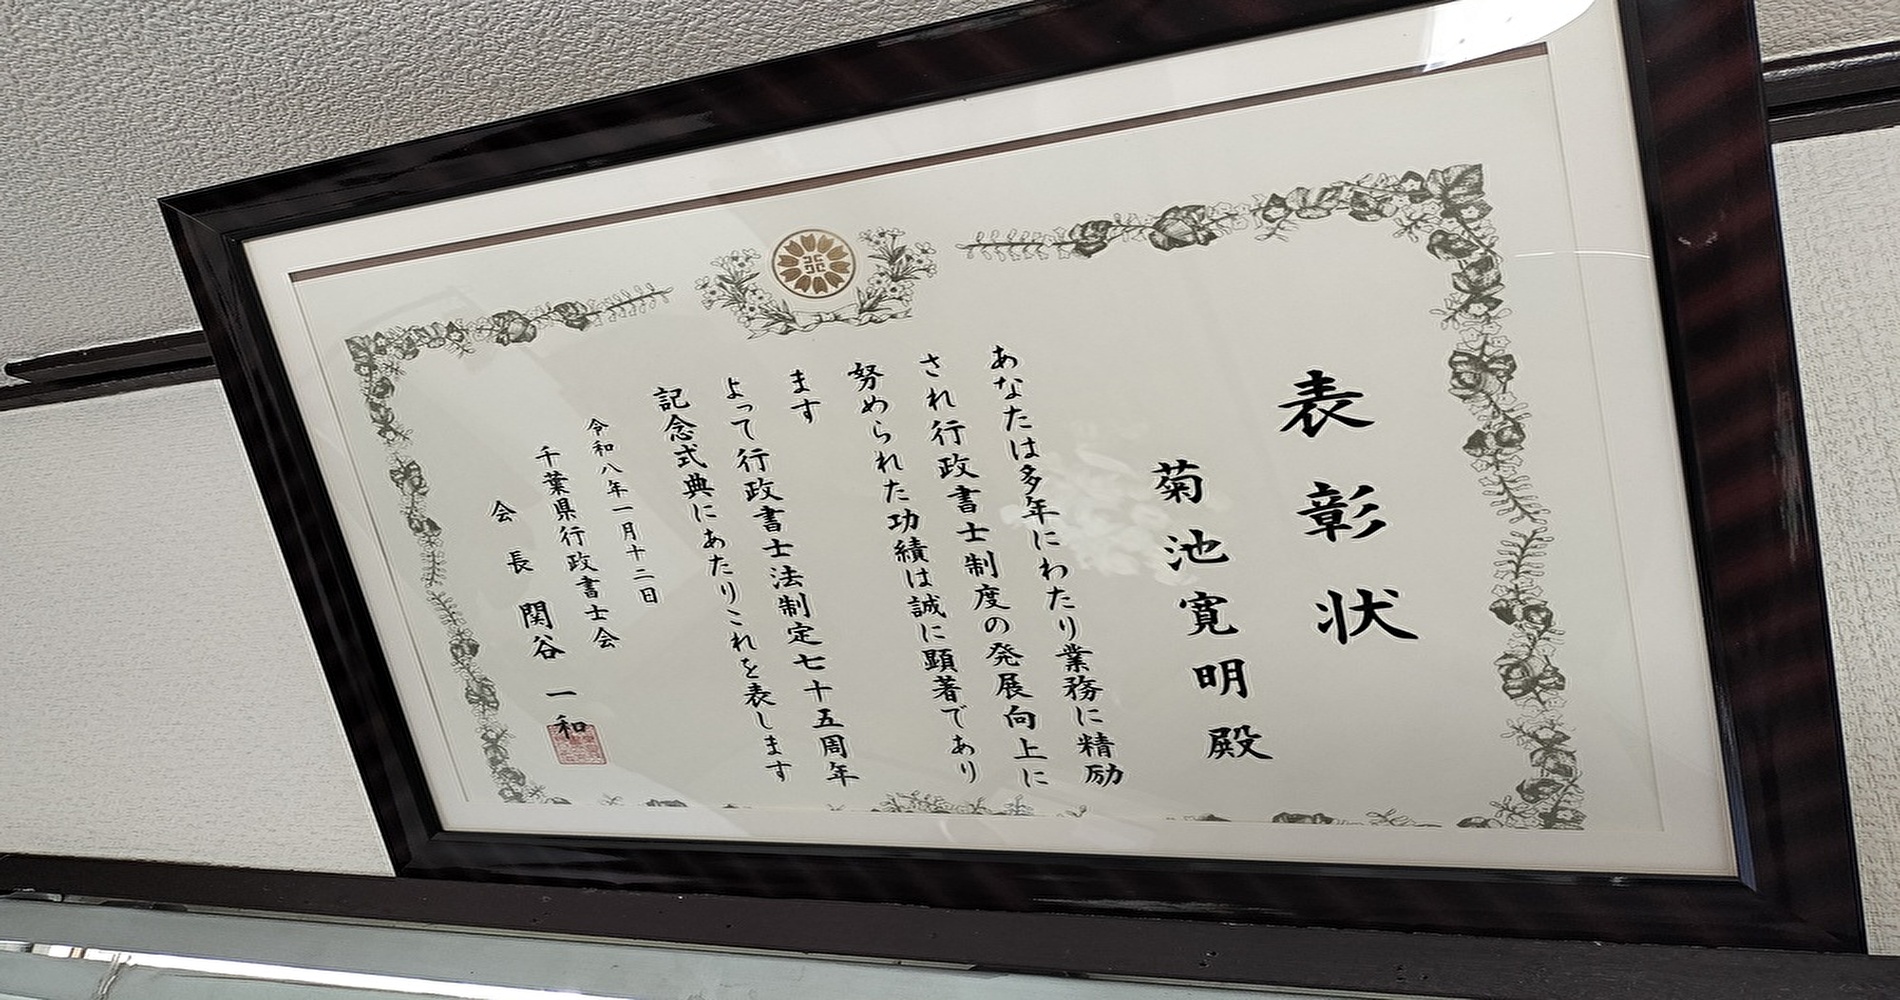 表彰状
菊池寛明殿
あなたは多年にわたり業務に精励
され行政書士制度の発展向上に
努められた功績は誠に顕著であり
ます
よって行政書士法制定七十五周年
記念式典にあたりこれを表します
令和八年一月十二日
千葉県行政書士会
会長 関谷一和